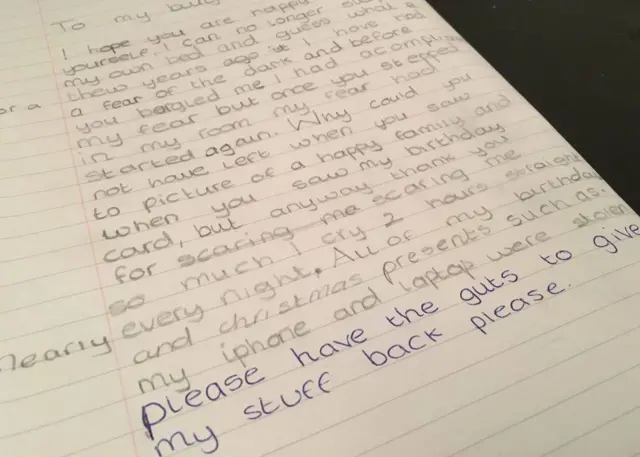 To my
I hope you are happy
yourself. I can no longer
my own bed and guess what
years ago I have had
a fear of the dark and before
you bargled me I had acomplis
my fear but once you stepped
in my room my fear had
started again. Why could you
not have left when you saw
to picture of a happy family and
when you saw my birthday
card, but anyway thank you
for scaring me scaring me
so much I cry 2 hours straight
Nearly every night. All of my birthday
and christmas presents such as.
my iphone and laptop were stolen
please have the guts to give
my stuff back please.